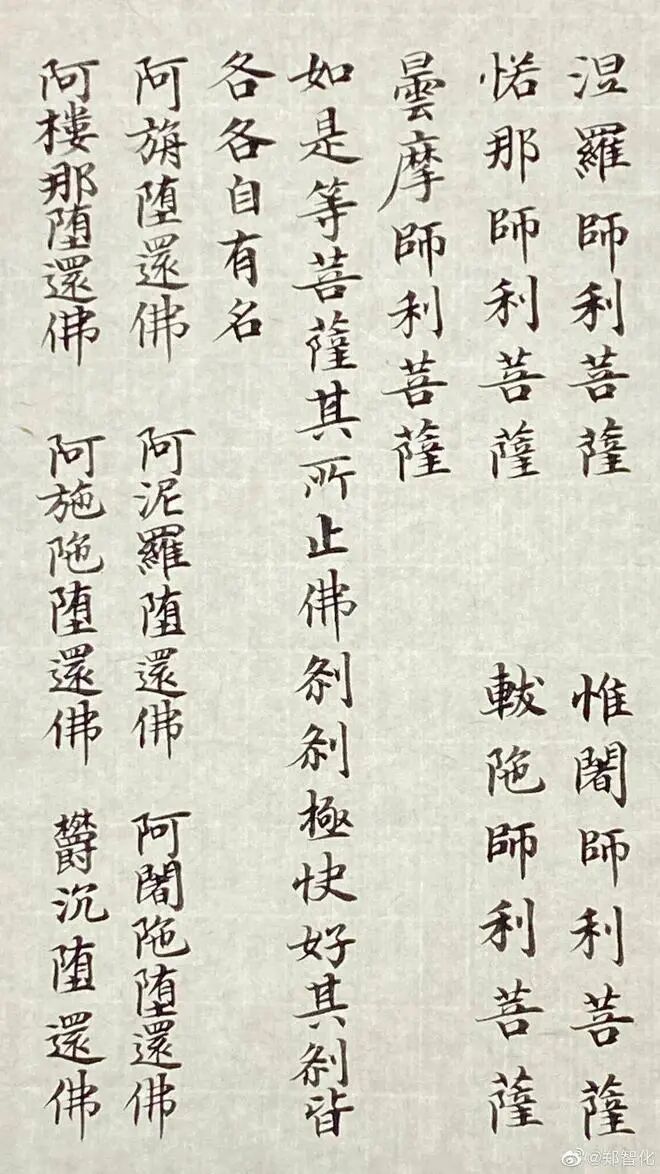 涅羅師利菩薩 惟闍師利菩薩
惒那師利菩薩 軷陁師利菩薩
曇摩師利菩薩
如是等菩薩其所止佛刹刹極快好其刹皆
各各自有名
阿旃堕還佛 阿泥羅堕還佛 阿闍陁堕還佛
阿樓那堕還佛 阿施陁堕還佛 欝沉堕還佛
@郑智化